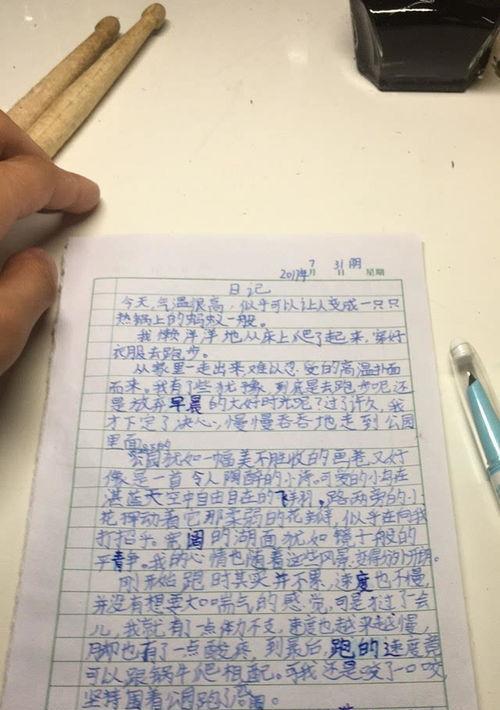 2017年7月31日 阴 星期
日记
今天,气温很高,似乎可以让人变成一只只
热锅上的蚂蚁一般。
我懒洋洋地从床上爬了起来,穿好
衣服去跑步。
从家里一走出来难以忍受的高温扑面
而来。我有了些犹豫,到底是去跑步呢还
是放弃早晨的大好时光呢?过了许久,我
才下定了决心,慢慢吞吞地走到公园
里面
公园就如一幅美不胜收的画卷,又好
像是一首令人陶醉的小诗。可爱的小鸟在
湛蓝天空中自由自在的飞翔。路两旁的小
花挥动着它那柔弱的花瓣,似乎在向我
打招乎。宽阔的湖面犹如镜子般的
平静。我的心情也随着这些风景,变得分外开朗。
刚开始跑时其实并不累,速度也不慢,
并没有想要大口喘气的感觉,可是才过了一会
儿,我就有了一点体力不支,速度也越来越慢,
脚也有了一点酸疼,到最后,跑的速度竟
可以跟蜗牛爬相配。可我还是咬了一口咬
坚持围着公园跑了